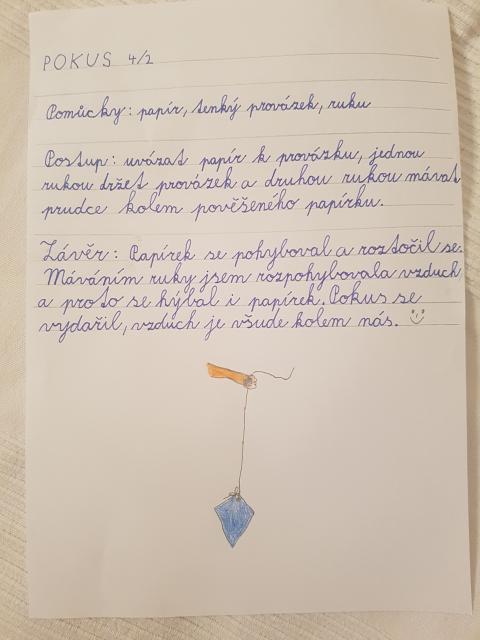 POKUS 4/2
Pomůcky: papír, tenký provázek, ruku
Postup: uvázat papír k provázku, jednou
rukou držet provázek a druhou rukou mávat
prudce kolem pověšeného papírku.
Závěr: Papírek se pohyboval a roztočil se.
Máváním ruky jsem rozpohybovala vzduch
a proto se hýbal i papírek. Pokus se
vydařil, vzduch je všude kolem nás.